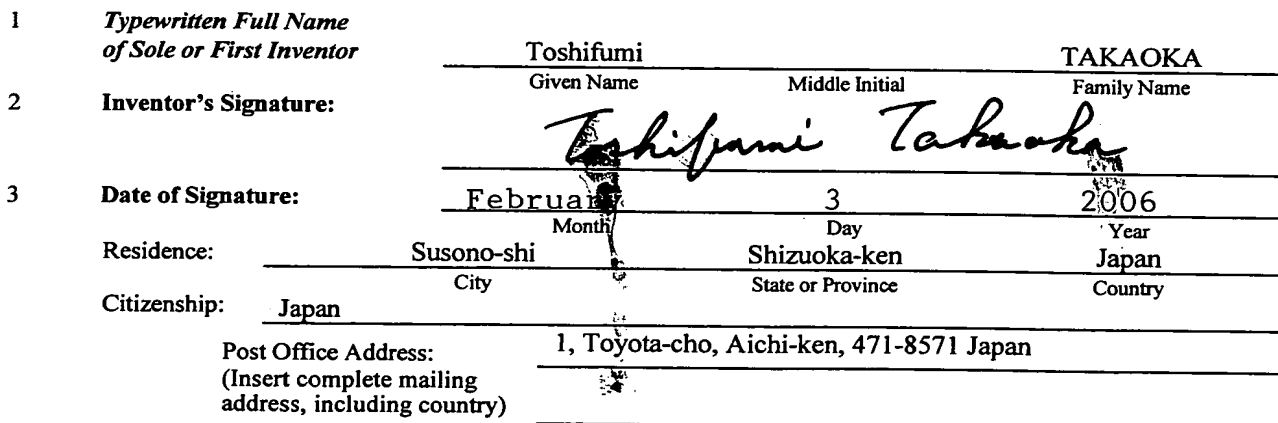 1 Typewritten Full Name
of Sole or First Inventor Toshifumi TAKAOKA
Given Name Middle Initial Family Name
2 Inventor's Signature: Toshifumi Takaoka
3 Date of Signature: February 3 2006
Month Day Year
Residence: Susono-shi Shizuoka-ken Japan
City State or Province Country
Citizenship: Japan
Post Office Address: 1, Toyota-cho, Aichi-ken, 471-8571 Japan
(Insert complete mailing
address, including country)